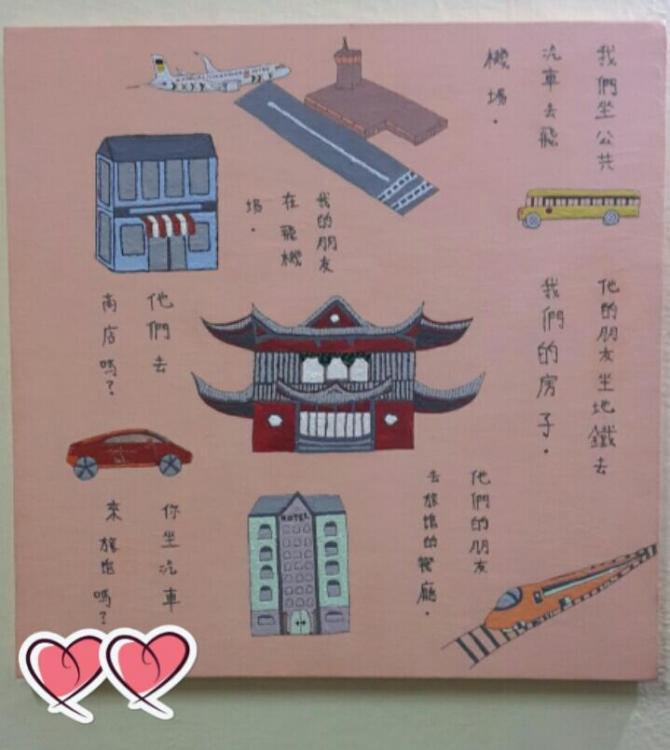 我們坐公共
汽車去飛
機場。
我的朋友
在飛機
場。
他的朋友坐地鐵去
我們的房子。
他們去
商店嗎？
他們的朋友
去旅館的餐廳。
你坐汽車
來旅館嗎？
HOTEL